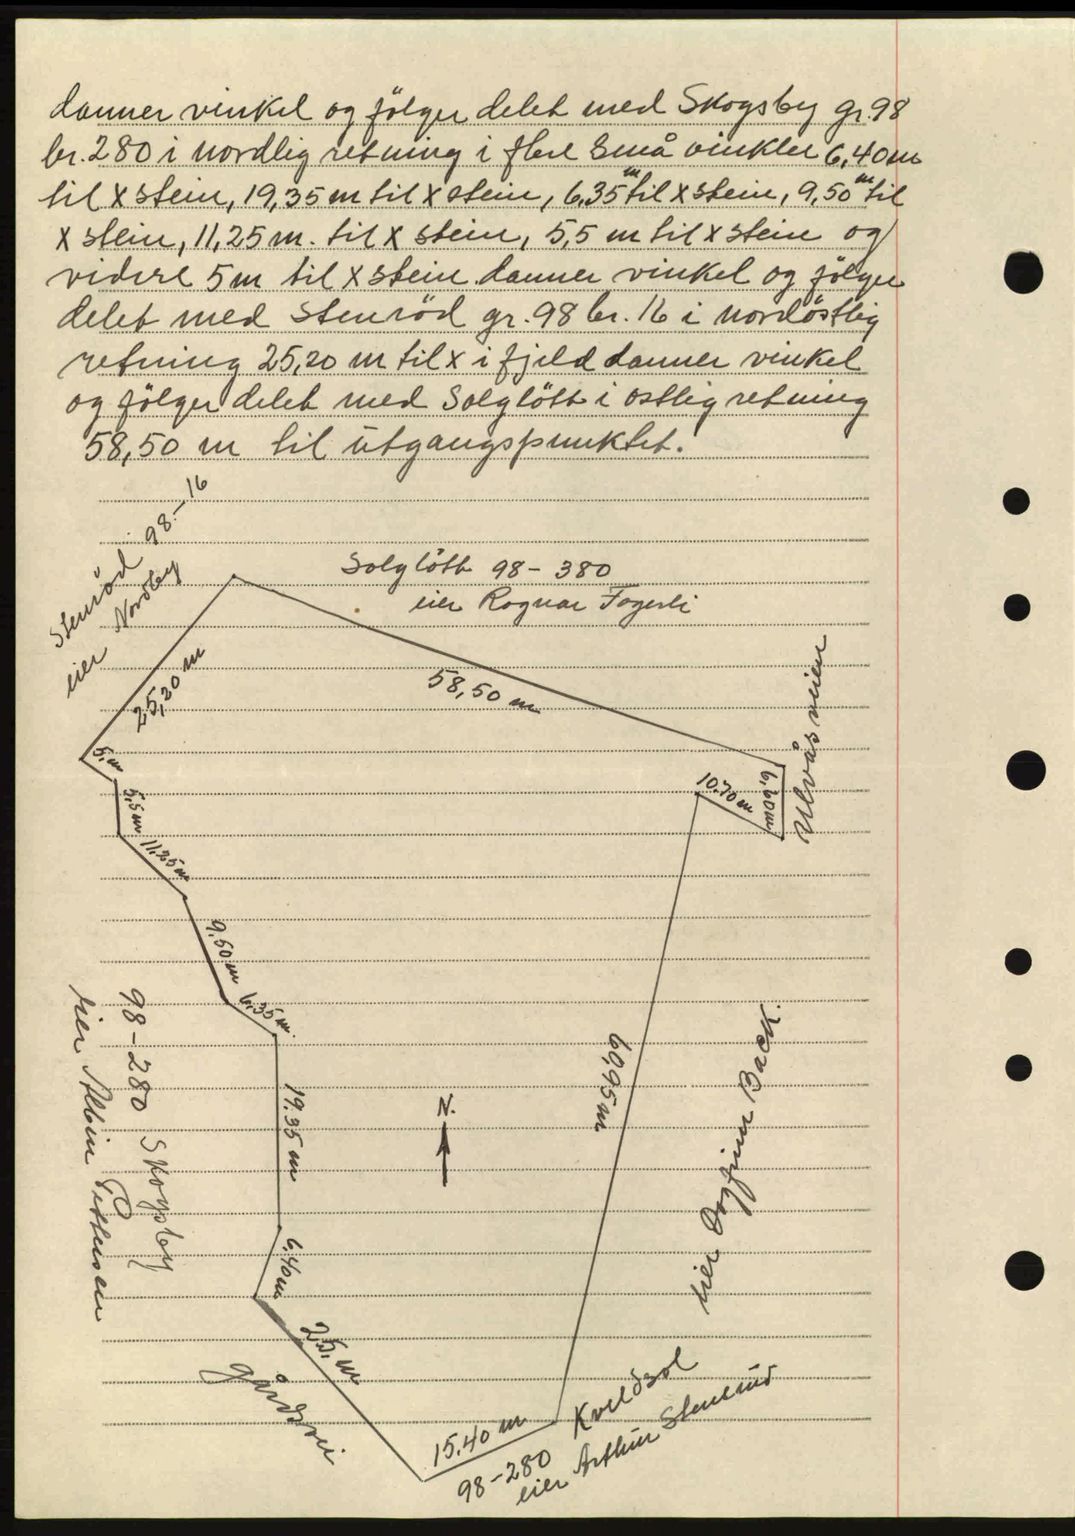 danner vinkel og följer delet med Skogsby gr. 98
br. 280 i nordlig retning i flere små vinkler 6,40 m
til x stein, 19,35 m til x stein, 6,35 m til x stein, 9,50 m til
x stein, 11,25 m. til x stein, 5,5 m til x stein og
videre 5 m til x stein danner vinkel og följer
delet med Stenröd gr. 98 br. 16 i nordöstlig
retning 25,20 m til x i fjeld danner vinkel
og följer delet med Solglött i ostlig retning
58,50 m til utgangspunktet.
Stenröd 98.-16
eier Nordby
Solglött 98-380
eier Ragnar Fagerli
25,20 m
58,50 m
Ulvåsveien
5, m
10,70 m
6,60 m
5,5 m
11,25 m
9,50 m
6,35 m.
98-280 Skogsby
eier Albin Pettersen
19,35 m
N.
60,95 m
eier Dagfinn Back.
6,40 m
25, m
gårdsvei
15,40 m
98-280 Kveldsol
eier Arthur Stenerud